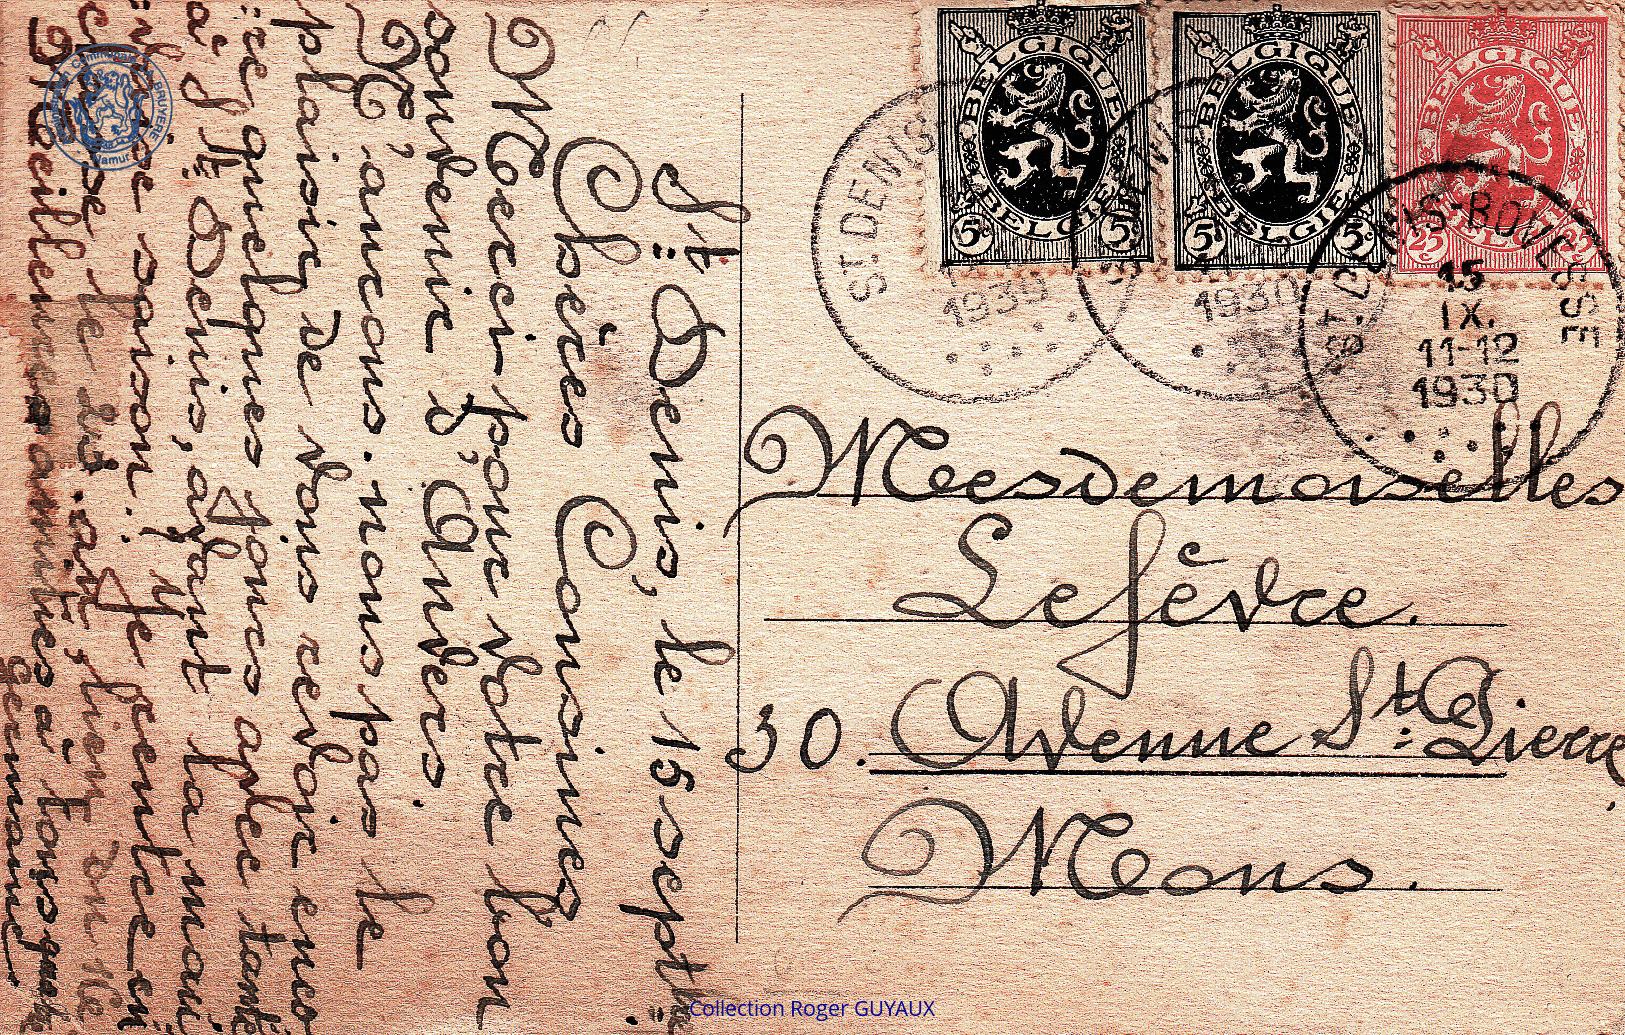 St Denis, le 15 sept
Chères Cousines
Merci pour votre bon
souvenir d'Anvers.
N'aurons-nous pas le
plaisir de vous revoir enco
re quelques jours chez tante
à St Denis, avant la mau
vaise saison? Je rentre en
classe le
Meilleures amitiés à tous
Germaine
BELGIQUE
BELGIE
5c 5c
BELGIQUE
BELGIE
5c 5c
BELGIQUE
BELGIE
25c 25c
ST. DENIS
1930
1930
ST. DENIS-BOVESSE
15
IX.
11-12
1930
Mesdemoiselles
Lefèvre.
30. Avenue St Pierre
Mons.
Namur
Collection Roger GUYAUX